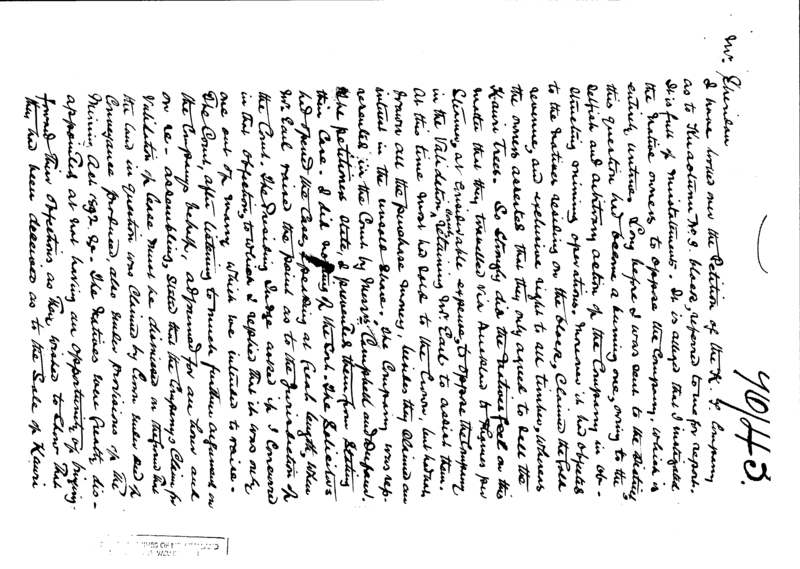 90/43.
Mr. Sheridan
I have looked over the Petition of the K. T. Company
as to No 3. block, referred to me for report.
It is full of misstatements. It is alleged that I instigated
the Native owners to oppose the Company, which is
entirely untrue. Long before I was sent to the District
this question had become a burning one, owing to the
selfish and arbitrary action of the Company in ob-
structing mining operations. Moreover it had objected
to the Natives residing on the block, claimed the Gold
revenue, and exclusive right to all timber, whereas
the owners asserted that they only agreed to sell the
Kauri Trees. So strongly did the Natives feel on this
matter that they travelled via Auckland to Thames per
Steamer, at considerable expense, to oppose the Company
in the Validation Court retaining Mr. Earl to assist them.
At this time most had sold to the Crown, but had not
drawn all the purchase money, besides they claimed an
interest in the unsold Share. The Company was rep-
resented in the Court by Messrs Campbell and
The petitioners state, I prevented them from stating
their Case. I did nothing of the sort. The Solicitors
had opened the Case, speaking at great length, when
Mr. Earl raised the point as to the Jurisdiction of
the Court. The Presiding Judge asked if I concurred
in this objection, to which I replied that it was only
one out of many which we intended to raise.
The Court, after listening to much further argument on
the Company's behalf, adjourned for an hour and
on re-assembling, stated that the Company's Claim for
Validation of Lease must be dismissed on the ground that
the land in question was claimed by Crown under deed of
Conveyance produced, also under provisions of the
Mining Act 1892 &c. The Natives were greatly dis-
appointed at not having an opportunity of bringing
forward their objections as they wished to show that
they had been deceived as to the Sale of Kauri